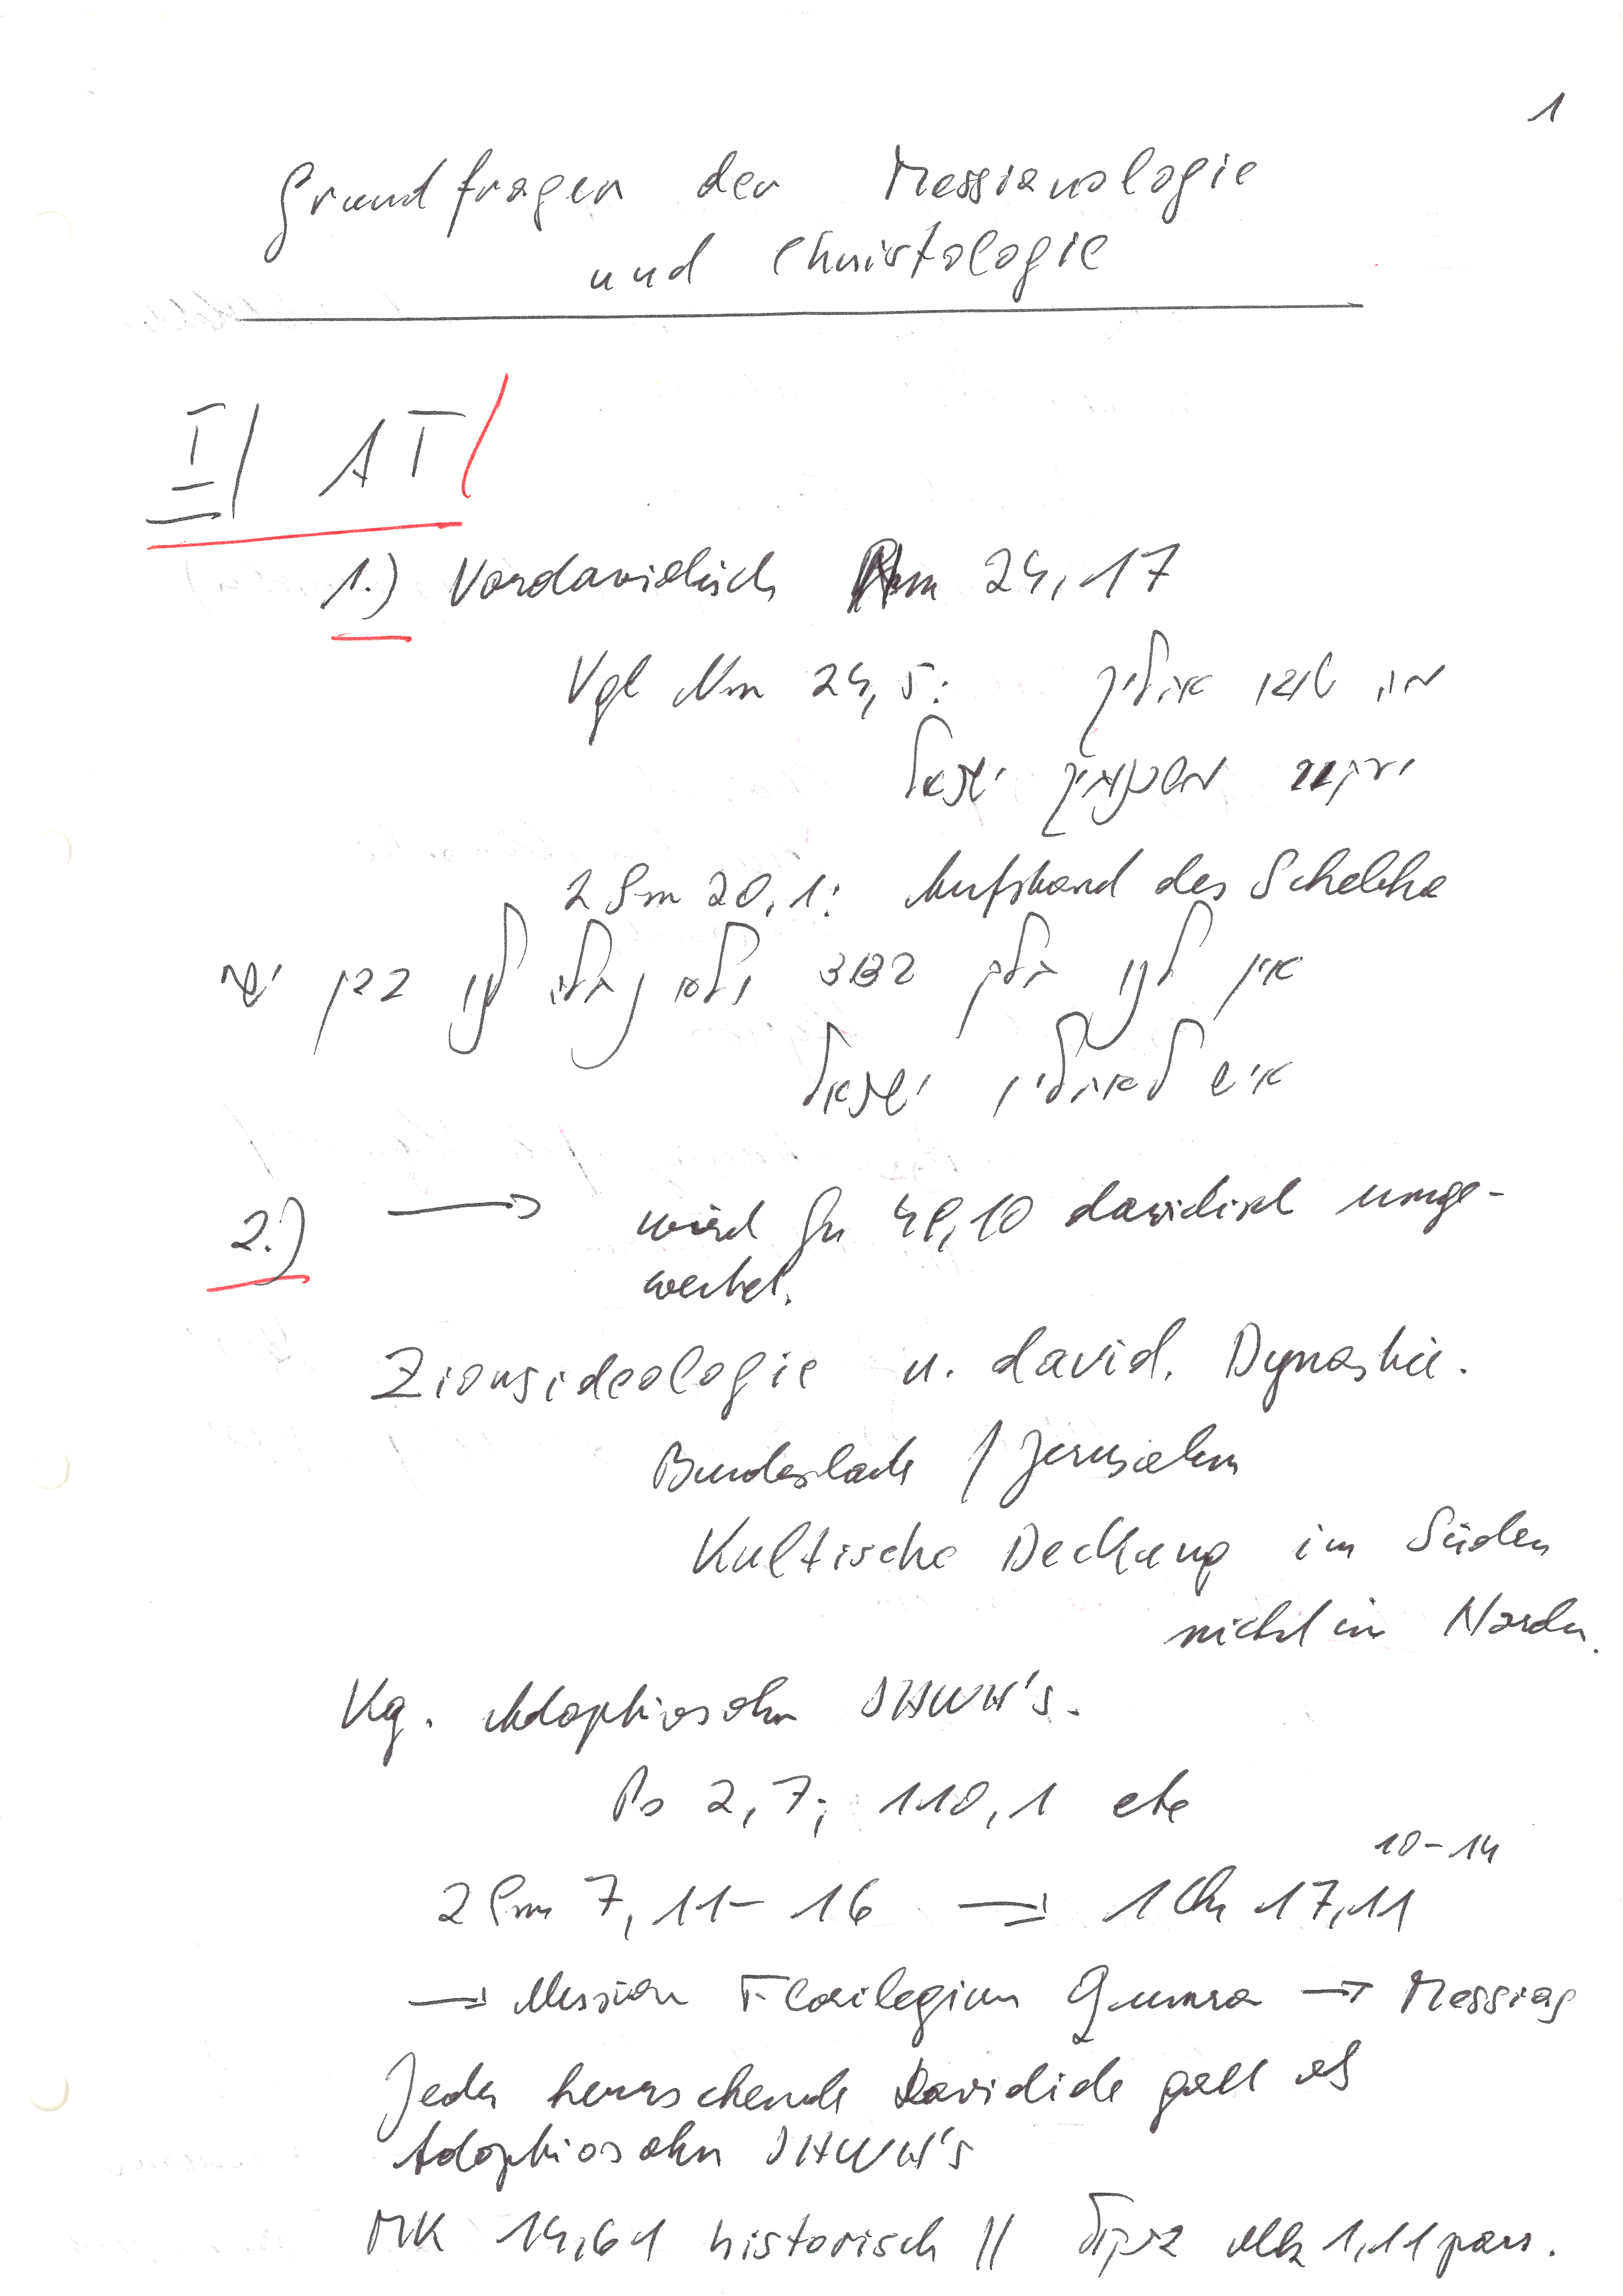 1
Grundfragen der Messianologie
und Christologie
I/ AT/
1.) Vordavidisch Nm 24,17
Vgl Nm 24,5: מה טובו אהליך
יעקב משכנתיך ישראל
2 Sm 20,1: Aufstand des Schebha
אין לנו חלק בדוד ולא נחלה לנו בבן ישי
איש לאהליו ישראל
2.) → wird Gn 49,10 davidisch umge-
wertet.
Zionsideologie u. david. Dynastie.
Bundeslade / Jerusalem
Kultische Deckung im Süden
nicht im Norden.
Kg. Adoptivsohn JHWH's.
Ps 2,7; 110,1 etc
10-14
2 Sm 7,11-16 → 1 Ch 17,11
→ Florilegium Qumran → Messias
Jeder herrschende Davidide galt als
Adoptivsohn JHWH's
MK 14,61 historisch // Mk 1,11 pars.